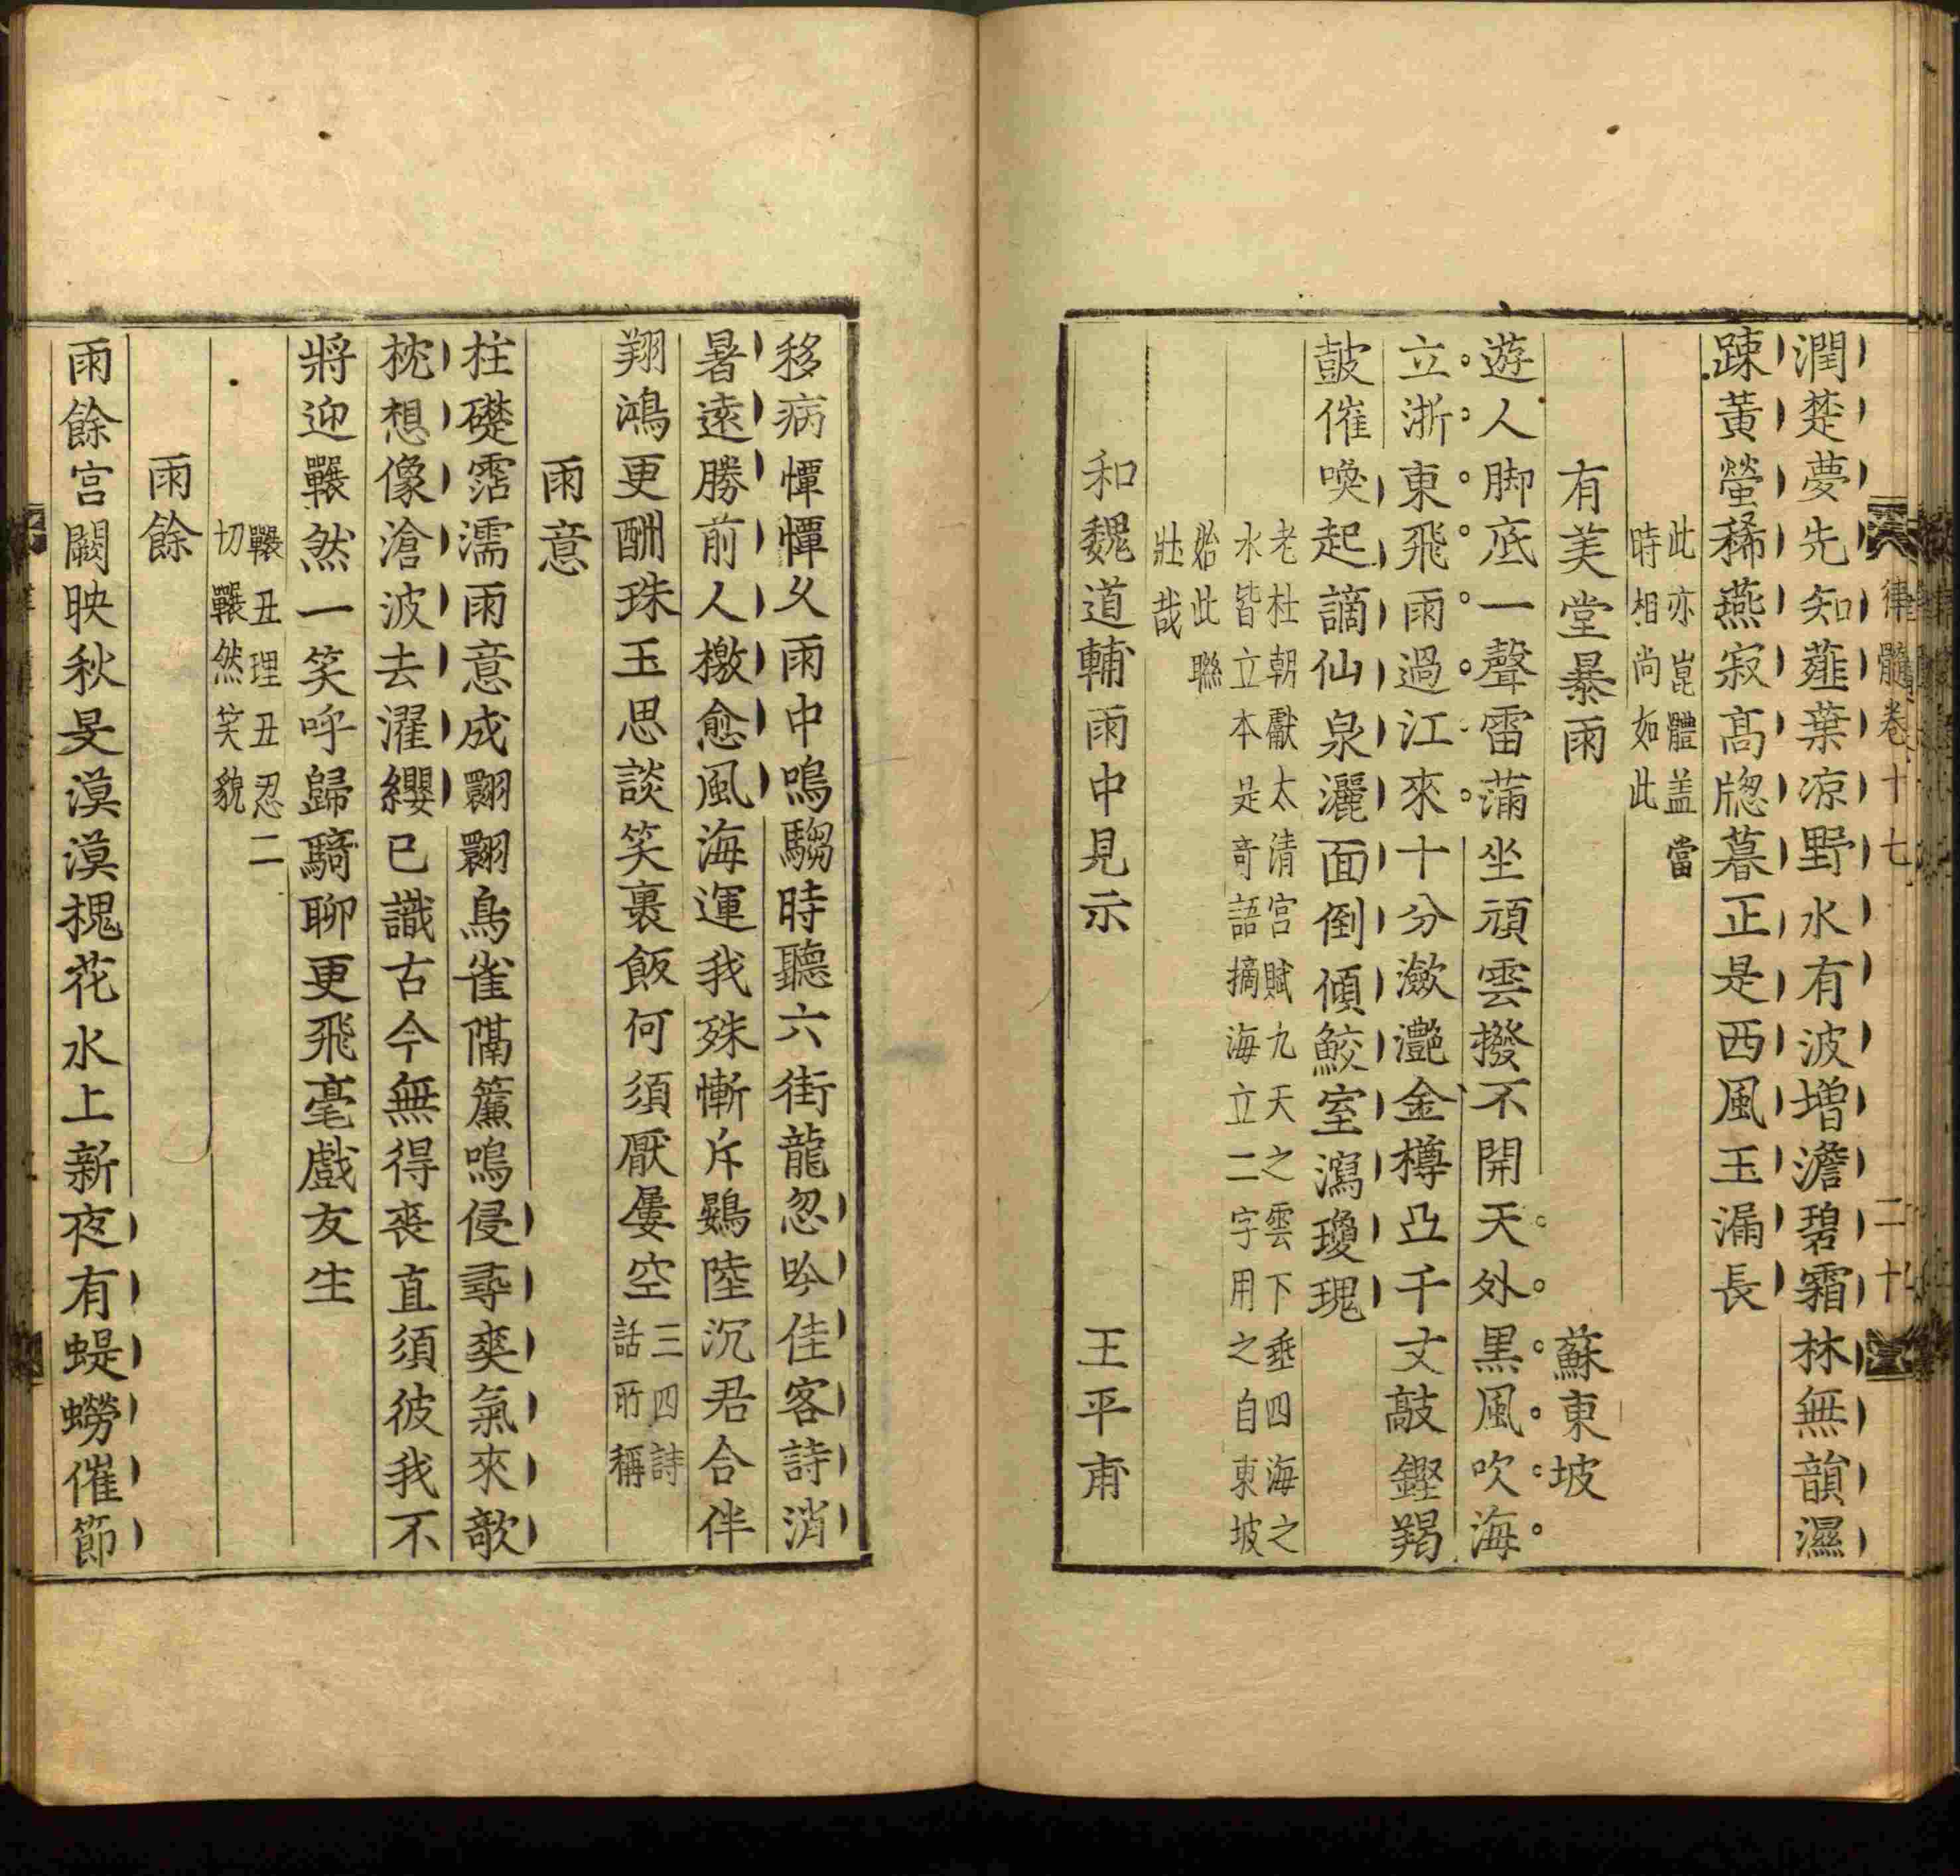 潤楚夢先知薤葉凉野水有波增澹碧霜林無韻濕
踈黃螢稀燕寂髙牎暮正是西風玉漏長
此亦崑體盖當
時相尚如此
有美堂暴雨 蘇東坡
遊人脚底一聲雷滿坐頑雲撥不開天外黒風吹海
立浙東飛雨過江來十分瀲灧金樽凸千丈敲鏗羯
鼓催喚起謫仙泉灑面倒傾鮫室瀉瓊瑰
老杜朝獻太清宫賦九天之雲下垂四海之
水皆立本是竒語摘海立二字用之自東坡
始此聮
壯哉
和魏道輔雨中見示 王平甫
律髓卷十七 二十
移病憚憚久雨中鳴騶時聽六街龍忽吟佳客詩消
暑逺勝前人檄愈風海運我殊慚斥鷃陸沉君合伴
翔鴻更酬珠玉思談笑裹飯何須厭屢空
三四詩
話所稱
雨意
柱礎霑濡雨意成翾翾鳥雀隔簾鳴侵尋爽氣來欹
枕想像滄波去濯纓已識古今無得丧直須彼我不
將迎囅然一笑呼歸騎聊更飛毫戲友生
囅丑理丑忍二
切囅然笑貌
雨餘
雨餘宫闕映秋旻漠漠槐花水上新夜有蝭蟧催節